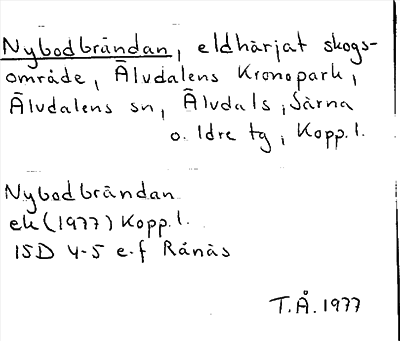 Nybodbrändan, eldhärjat skogs-
område, Älvdalens Kronopark,
Älvdalens sn, Älvdals, Särna
o. Idre tg, Kopp.l.
Nybodbrändan
ek (1977) Kopp.l.
15D 4-5 e-f Rånäs
T.Å. 1977